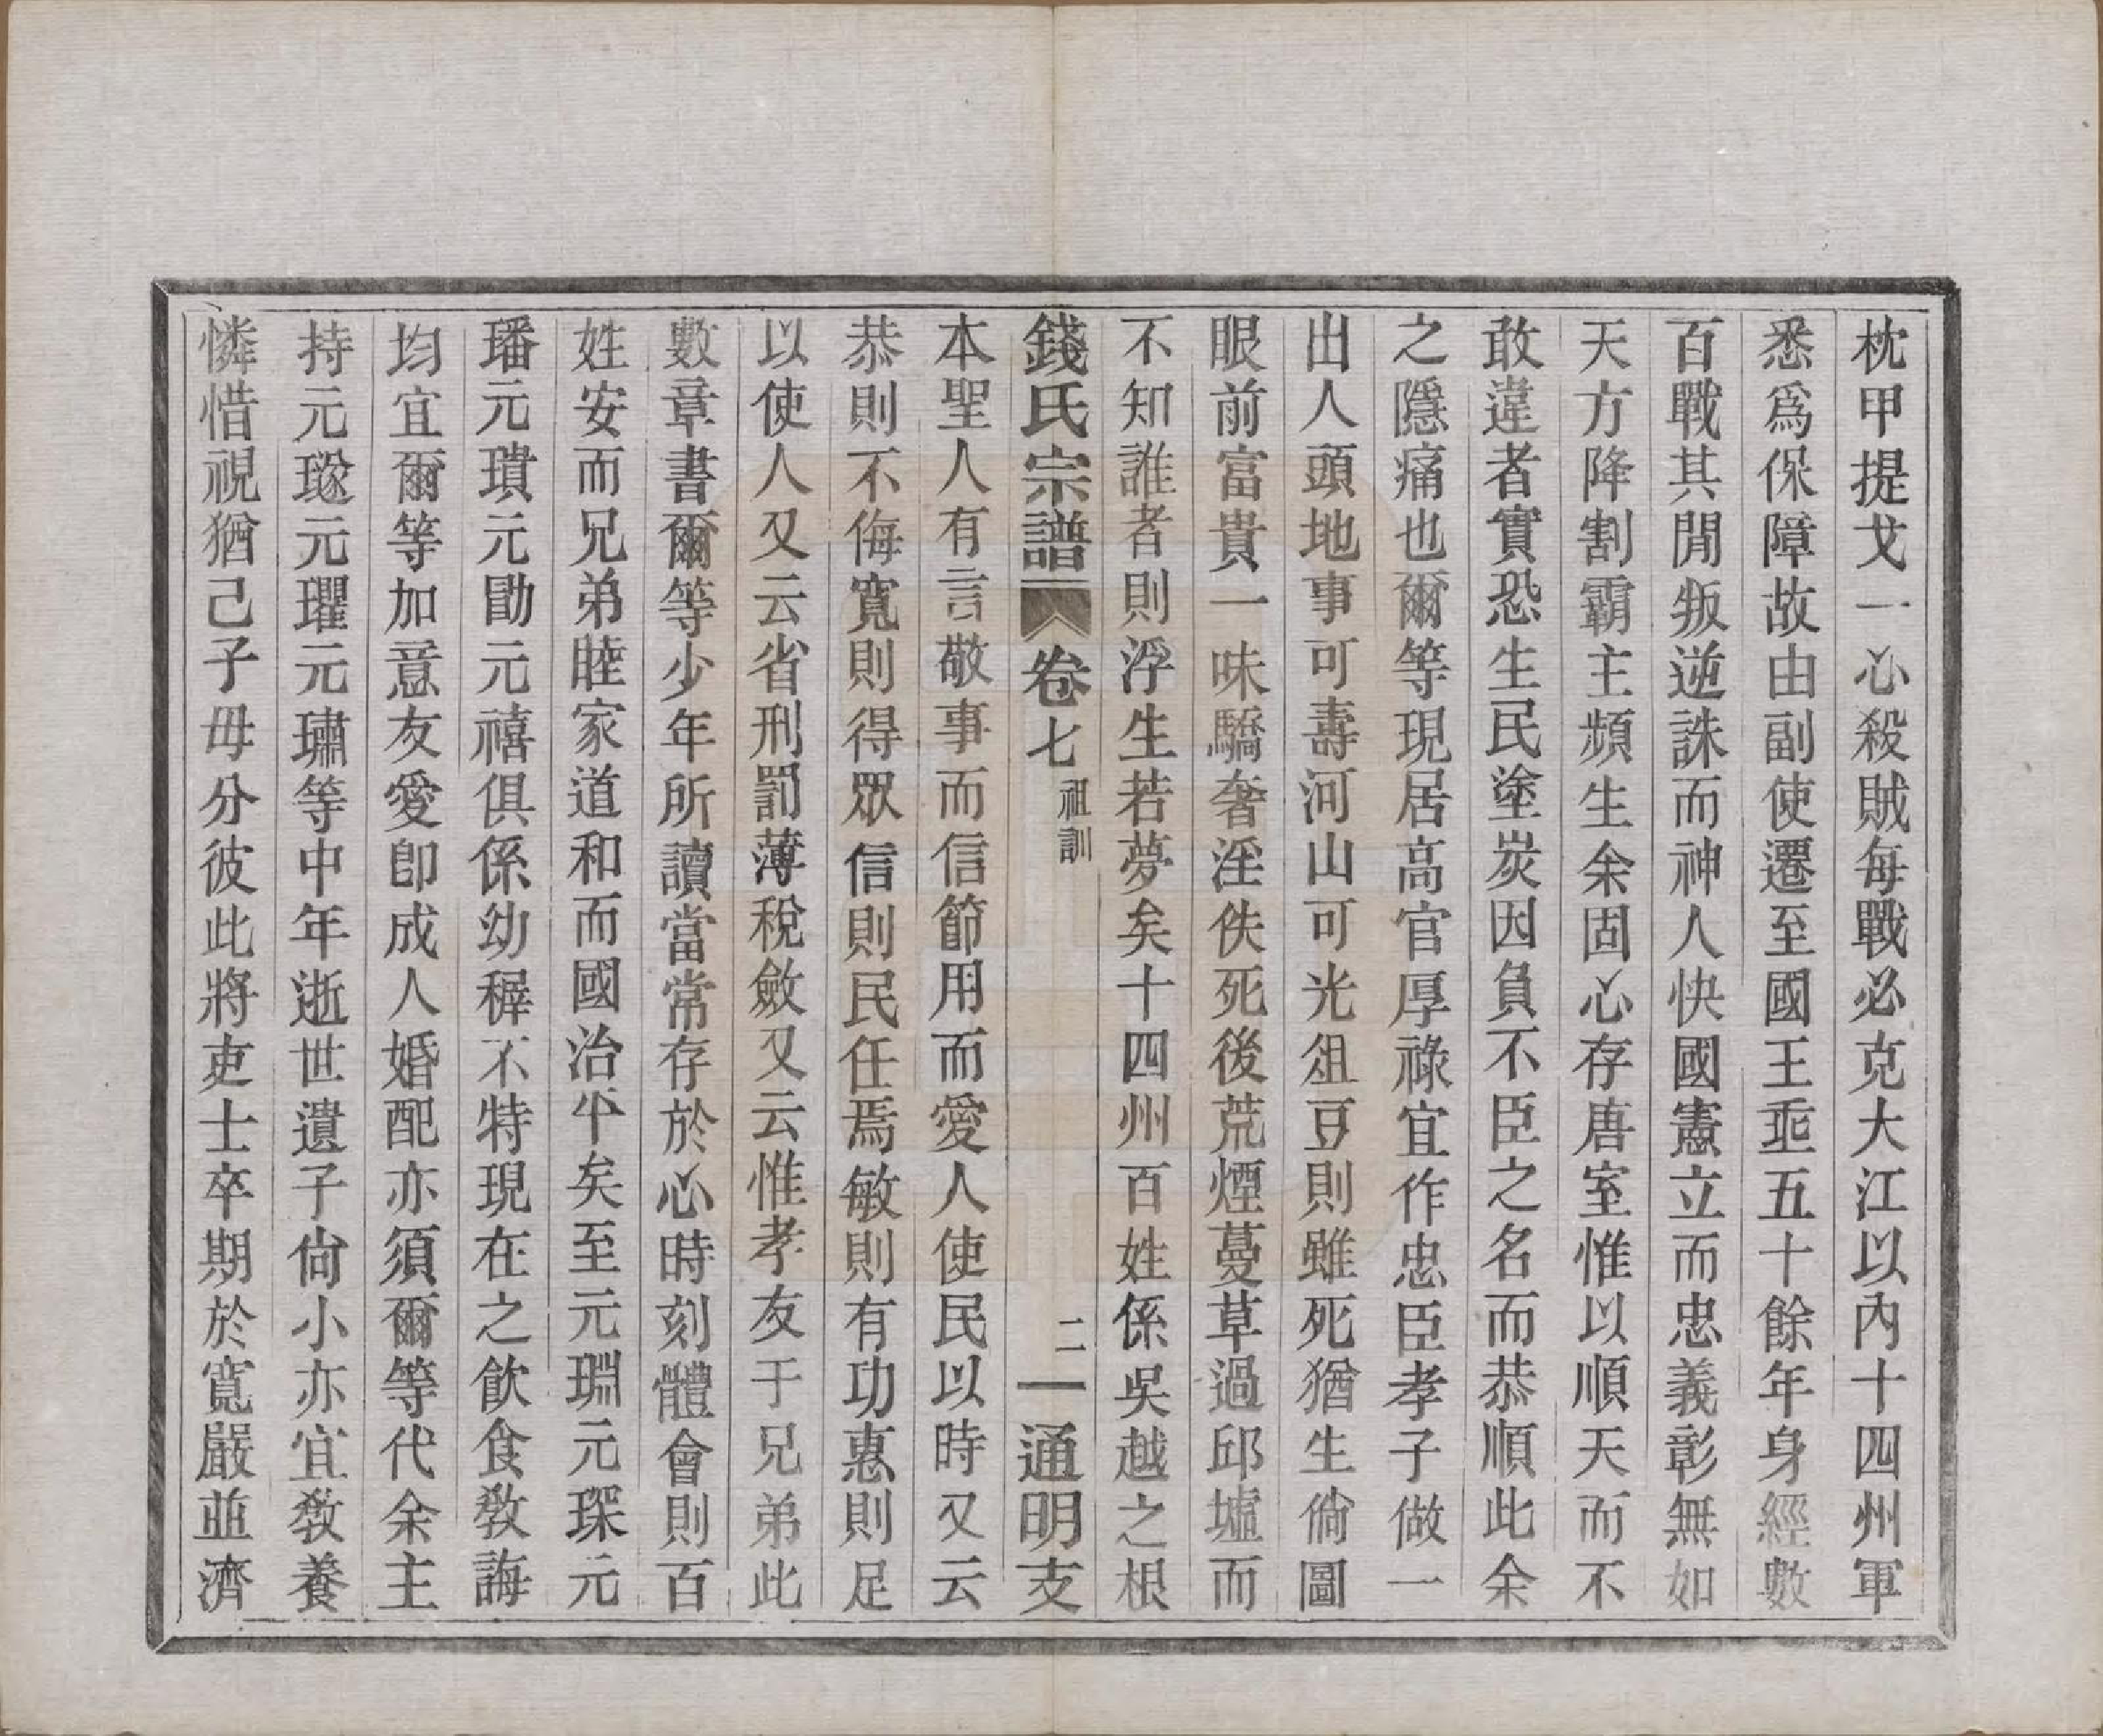 枕甲提戈一心殺賊每戰必克大江以內十四州軍
悉爲保障故由副使遷至國王垂五十餘年身經數
百戰其閒叛逆誅而神人快國憲立而忠義彰無如
天方降割霸主頻生余固心存唐室惟以順天而不
敢違者實恐生民塗炭因負不臣之名而恭順此余
之隱痛也爾等現居高官厚祿宜作忠臣孝子做一
出人頭地事可壽河山可光俎豆則雖死猶生倘圖
眼前富貴一味驕奢淫佚死後荒煙蔓草過邱墟而
不知誰者則浮生若夢矣十四州百姓係吳越之根
錢氏宗譜 卷七 祖訓 二 通明支
本聖人有言敬事而信節用而愛人使民以時又云
恭則不侮寬則得眾信則民任焉敏則有功惠則足
以使人又云省刑罰薄稅斂又云惟孝友于兄弟此
數章書爾等少年所讀當常存於心時刻體會則百
姓安而兄弟睦家道和而國治平矣至元琳元琛元
璠元璝元勖元禧俱係幼穉不特現在之飲食教誨
均宜爾等加意友愛卽成人婚配亦須爾等代余主
持元璲元瓘元璛等中年逝世遺子尙小亦宜教養
憐惜視猶己子毋分彼此將吏士卒期於寬嚴並濟